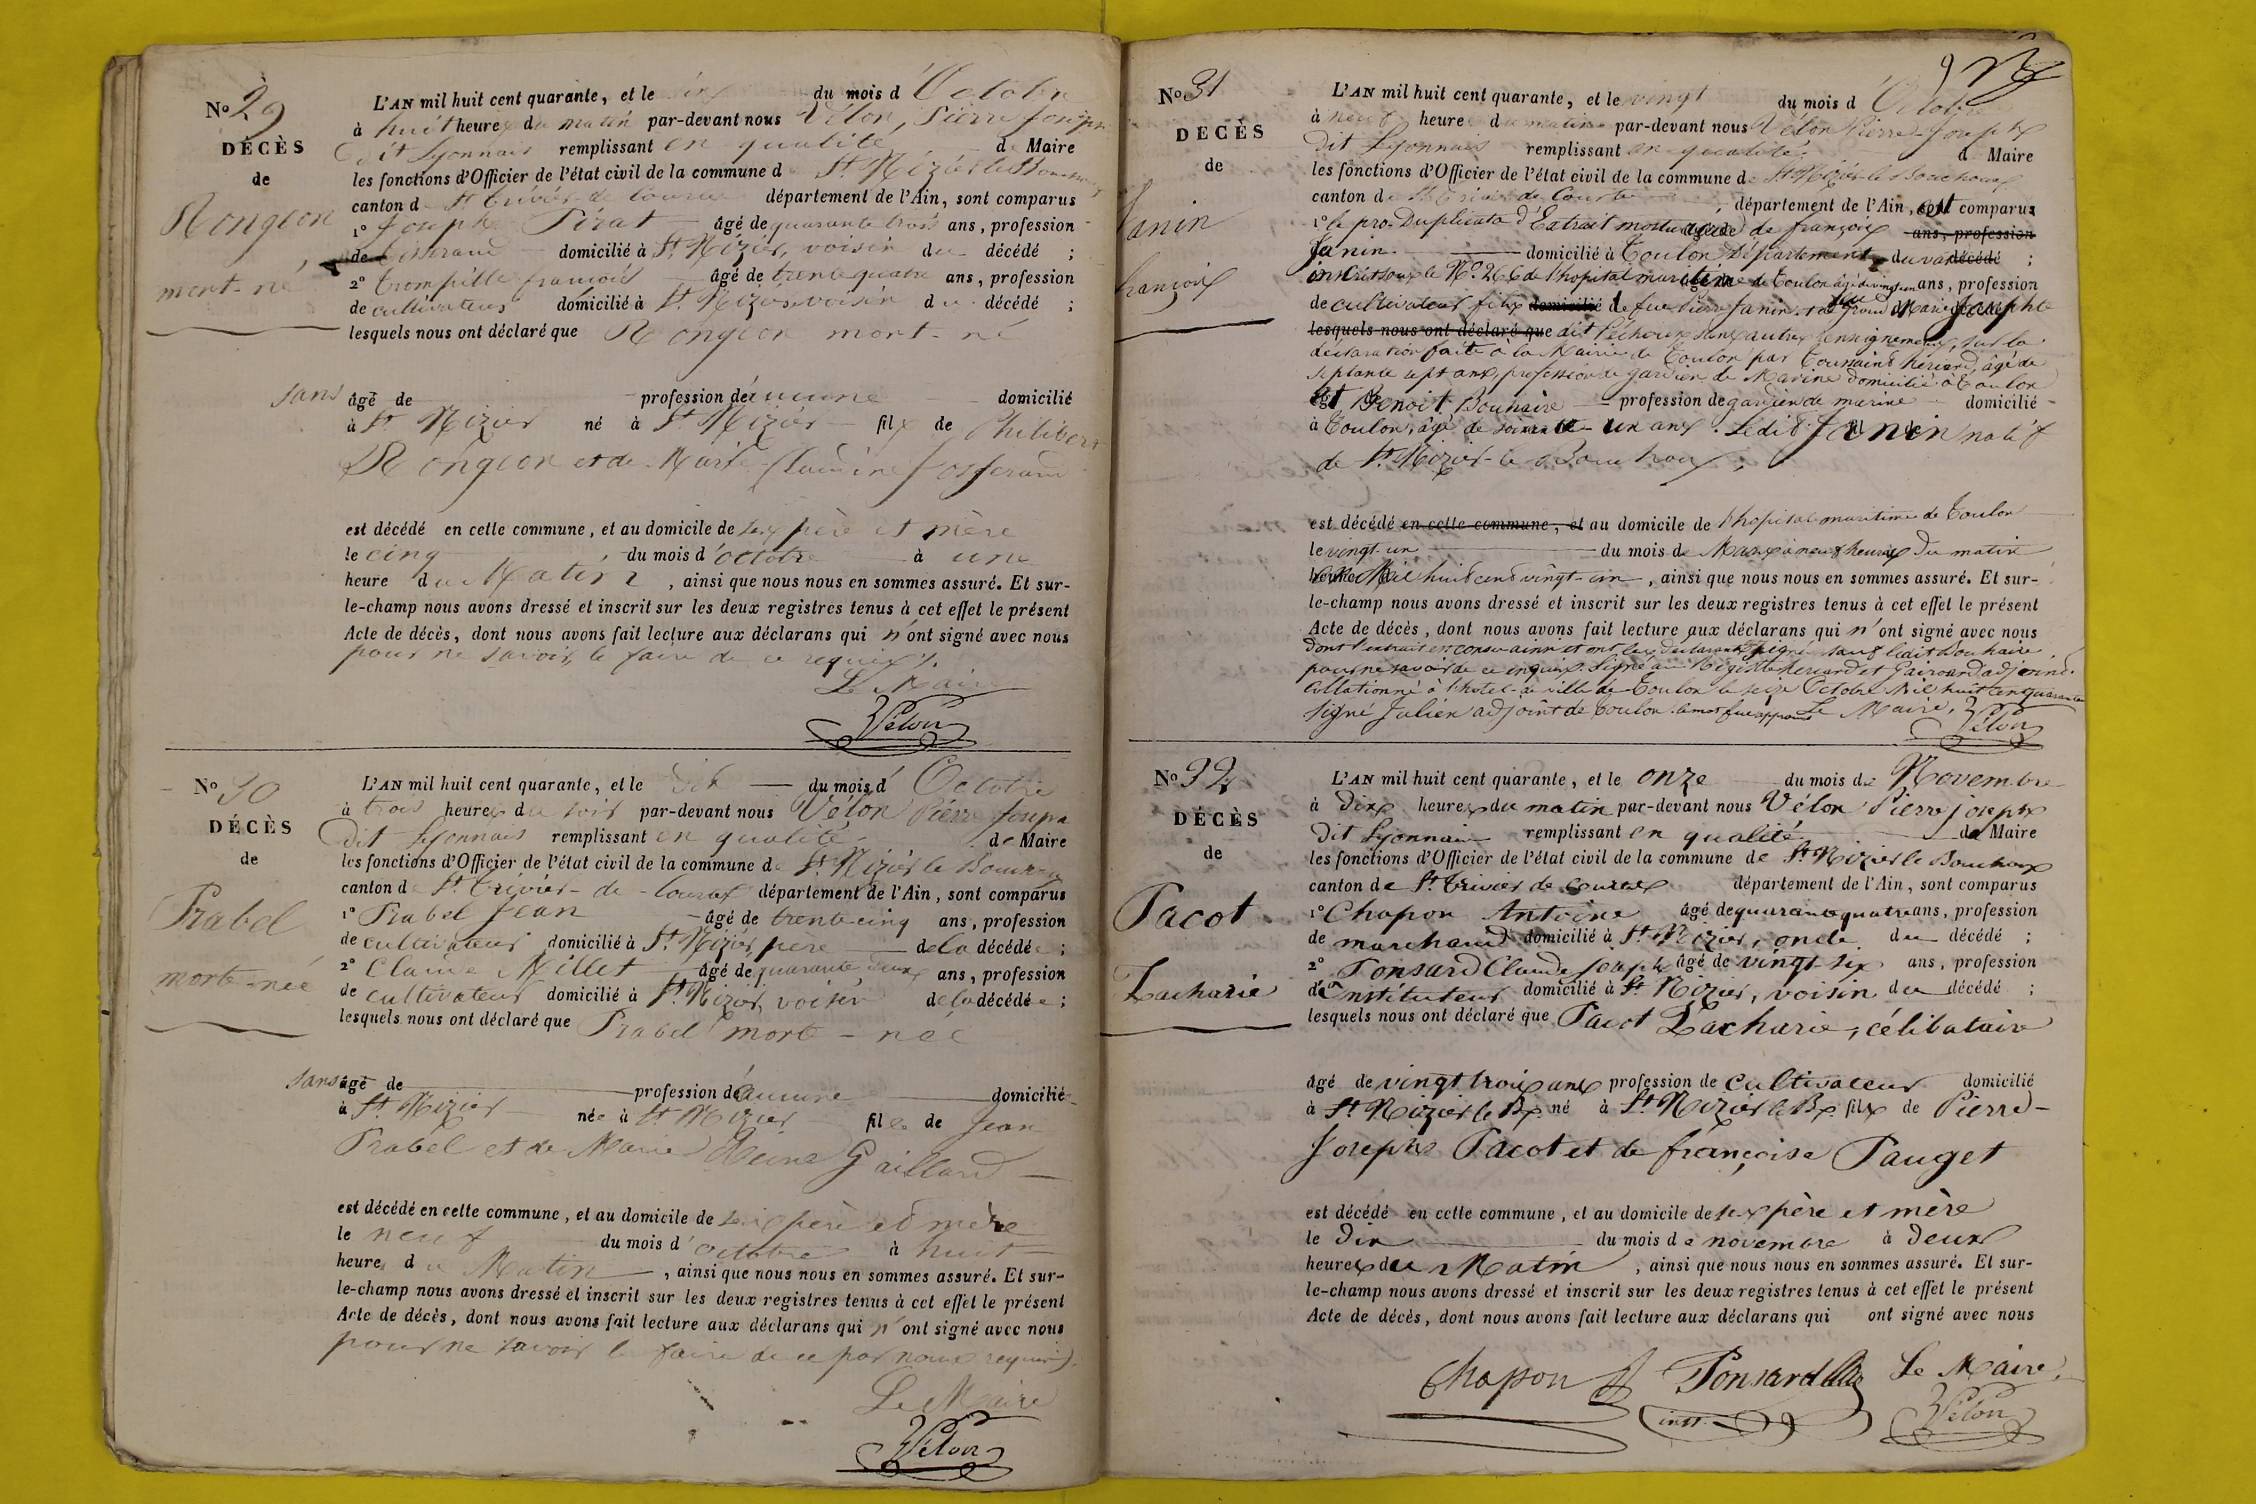 No 29
DÉCÈS
de
Rongeon
mort-né
L'AN mil huit cent quarante, et le six du mois d'Octobre
à huit heures du matin par-devant nous Vélon, Pierre Joseph
dit Lyonnais remplissant en qualité de Maire
les fonctions d'Officier de l'état civil de la commune de St Nizier le Bouchoux
canton de St Trivier-de-Courtes département de l'Ain, sont comparus
1º Joseph Pirat âgé de quarante trois ans, profession
de tisserand domicilié à St Nizier, voisin du décédé ;
2º Trompille françois âgé de trente quatre ans, profession
de cultivateur domicilié à St Nizier voisin du décédé ;
lesquels nous ont déclaré que Rongeon mort-né
sans âgé de profession de aucune domicilié
à St Nizier né à St Nizier fils de Philibert
Rongeon et de Marie Claudine Josserand
est décédé en cette commune, et au domicile de ses père et mère
le cinq du mois d'octobre à une
heure du Matin, ainsi que nous nous en sommes assuré. Et sur-
le-champ nous avons dressé et inscrit sur les deux registres tenus à cet effet le présent
Acte de décès, dont nous avons fait lecture aux déclarans qui n'ont signé avec nous
pour ne savoir le faire de ce requis.
Le Maire
Vélon
No 30
DÉCÈS
de
Prabel
morte-née
L'AN mil huit cent quarante, et le dix du mois d'Octobre
à trois heures du soir par-devant nous Vélon Pierre Joseph
dit Lyonnais remplissant en qualité de Maire
les fonctions d'Officier de l'état civil de la commune de St Nizier le Bouchoux
canton de St Trivier-de-Courtes département de l'Ain, sont comparus
1º Prabel Jean âgé de trente-cinq ans, profession
de cultivateur domicilié à St Nizier, père de la décédée ;
2º Claude Millet âgé de quarante deux ans, profession
de cultivateur domicilié à St Nizier, voisin de la décédée ;
lesquels nous ont déclaré que Prabel morte-née
sans âgé de profession de aucune domicilié
à St Nizier née à St Nizier fille de Jean
Prabel et de Marie Reine Gaillard
est décédé en cette commune, et au domicile de ses père et mère
le neuf du mois d'octobre à huit
heures du Matin, ainsi que nous nous en sommes assuré. Et sur-
le-champ nous avons dressé et inscrit sur les deux registres tenus à cet effet le présent
Acte de décès, dont nous avons fait lecture aux déclarans qui n'ont signé avec nous
pour ne savoir le faire de ce par nous requis.
Le Maire
Vélon
No 31
DÉCÈS
de
Janin
françois
L'AN mil huit cent quarante, et le vingt du mois d'Octobre
à neuf heures du matin par-devant nous Vélon Pierre-Joseph
dit Lyonnais remplissant en qualité de Maire
les fonctions d'Officier de l'état civil de la commune de St Nizier-le Bouchoux
canton de St Trivier de Courtes, département de l'Ain, est comparus
1º le pro-Duplicata d'Extrait mortuaire de françois ans, profession
Janin domicilié à Toulon Département du var décédé ;
inscrit sous le No. 266 de l'hopital maritime de Toulon âgé de vingt un ans, profession
de cultivateur fils domicilié de feu Pierre Janin et de Marie Josephte
lesquels nous ont déclaré que dit Péchoux sans autres renseignements, sur la
déclaration faite à la Mairie de Toulon par Toussaint hériard, âgé de
septante sept ans, profession de gardien de Marine domicilié à Toulon
Et Benoit Bouhaire profession de gardien de marine domicilié
à Toulon, âgé de soixante-un ans. Ledit Janin natif
de St Nizier-le Bouchoux,
est décédé en cette commune, et au domicile de l'hopital maritime de Toulon
le vingt-un du mois de Mars à neuf heures du matin
Mil huit cent vingt-un, ainsi que nous nous en sommes assuré. Et sur-
le-champ nous avons dressé et inscrit sur les deux registres tenus à cet effet le présent
Acte de décès, dont nous avons fait lecture aux déclarans qui n'ont signé avec nous
Dont l'extrait et ont les déclarants signé sauf ledit Bouhaire
pour ne savoir de ce enquis. Signé au Registre heriard et Gairoard adjoint
Collationné à l'hotel-de ville de Toulon le seize Octobre Mil huit cent quarante
Signé Julien adjoint de Toulon. le mot feu approuvé Le Maire,
Vélon
No 32
DÉCÈS
de
Pacot
Zacharie
L'AN mil huit cent quarante, et le onze du mois de Novembre
à Dix heures du matin par-devant nous Vélon Pierre joseph
dit Lyonnais remplissant en qualité de Maire
les fonctions d'Officier de l'état civil de la commune de St Nizier le Bouchoux
canton de St Trivier de Courtes département de l'Ain, sont comparus
1º Chapon Antoine âgé de quarante quatre ans, profession
de marchand domicilié à St Nizier, oncle du décédé ;
2º Ponsard Claude Joseph âgé de vingt-six ans, profession
d'Instituteur domicilié à St Nizier, voisin du décédé ;
lesquels nous ont déclaré que Pacot Zacharie, célibataire
âgé de vingt trois ans profession de cultivateur domicilié
à St Nizier le Bx né à St Nizier le Bx fils de Pierre-
Joseph Pacot et de françoise Pauget
est décédé en cette commune, et au domicile de ses père et mère
le Dix du mois de novembre à deux
heures du Matin, ainsi que nous nous en sommes assuré. Et sur-
le-champ nous avons dressé et inscrit sur les deux registres tenus à cet effet le présent
Acte de décès, dont nous avons fait lecture aux déclarans qui ont signé avec nous
Chapon Ponsard Le Maire,
instr. Vélon